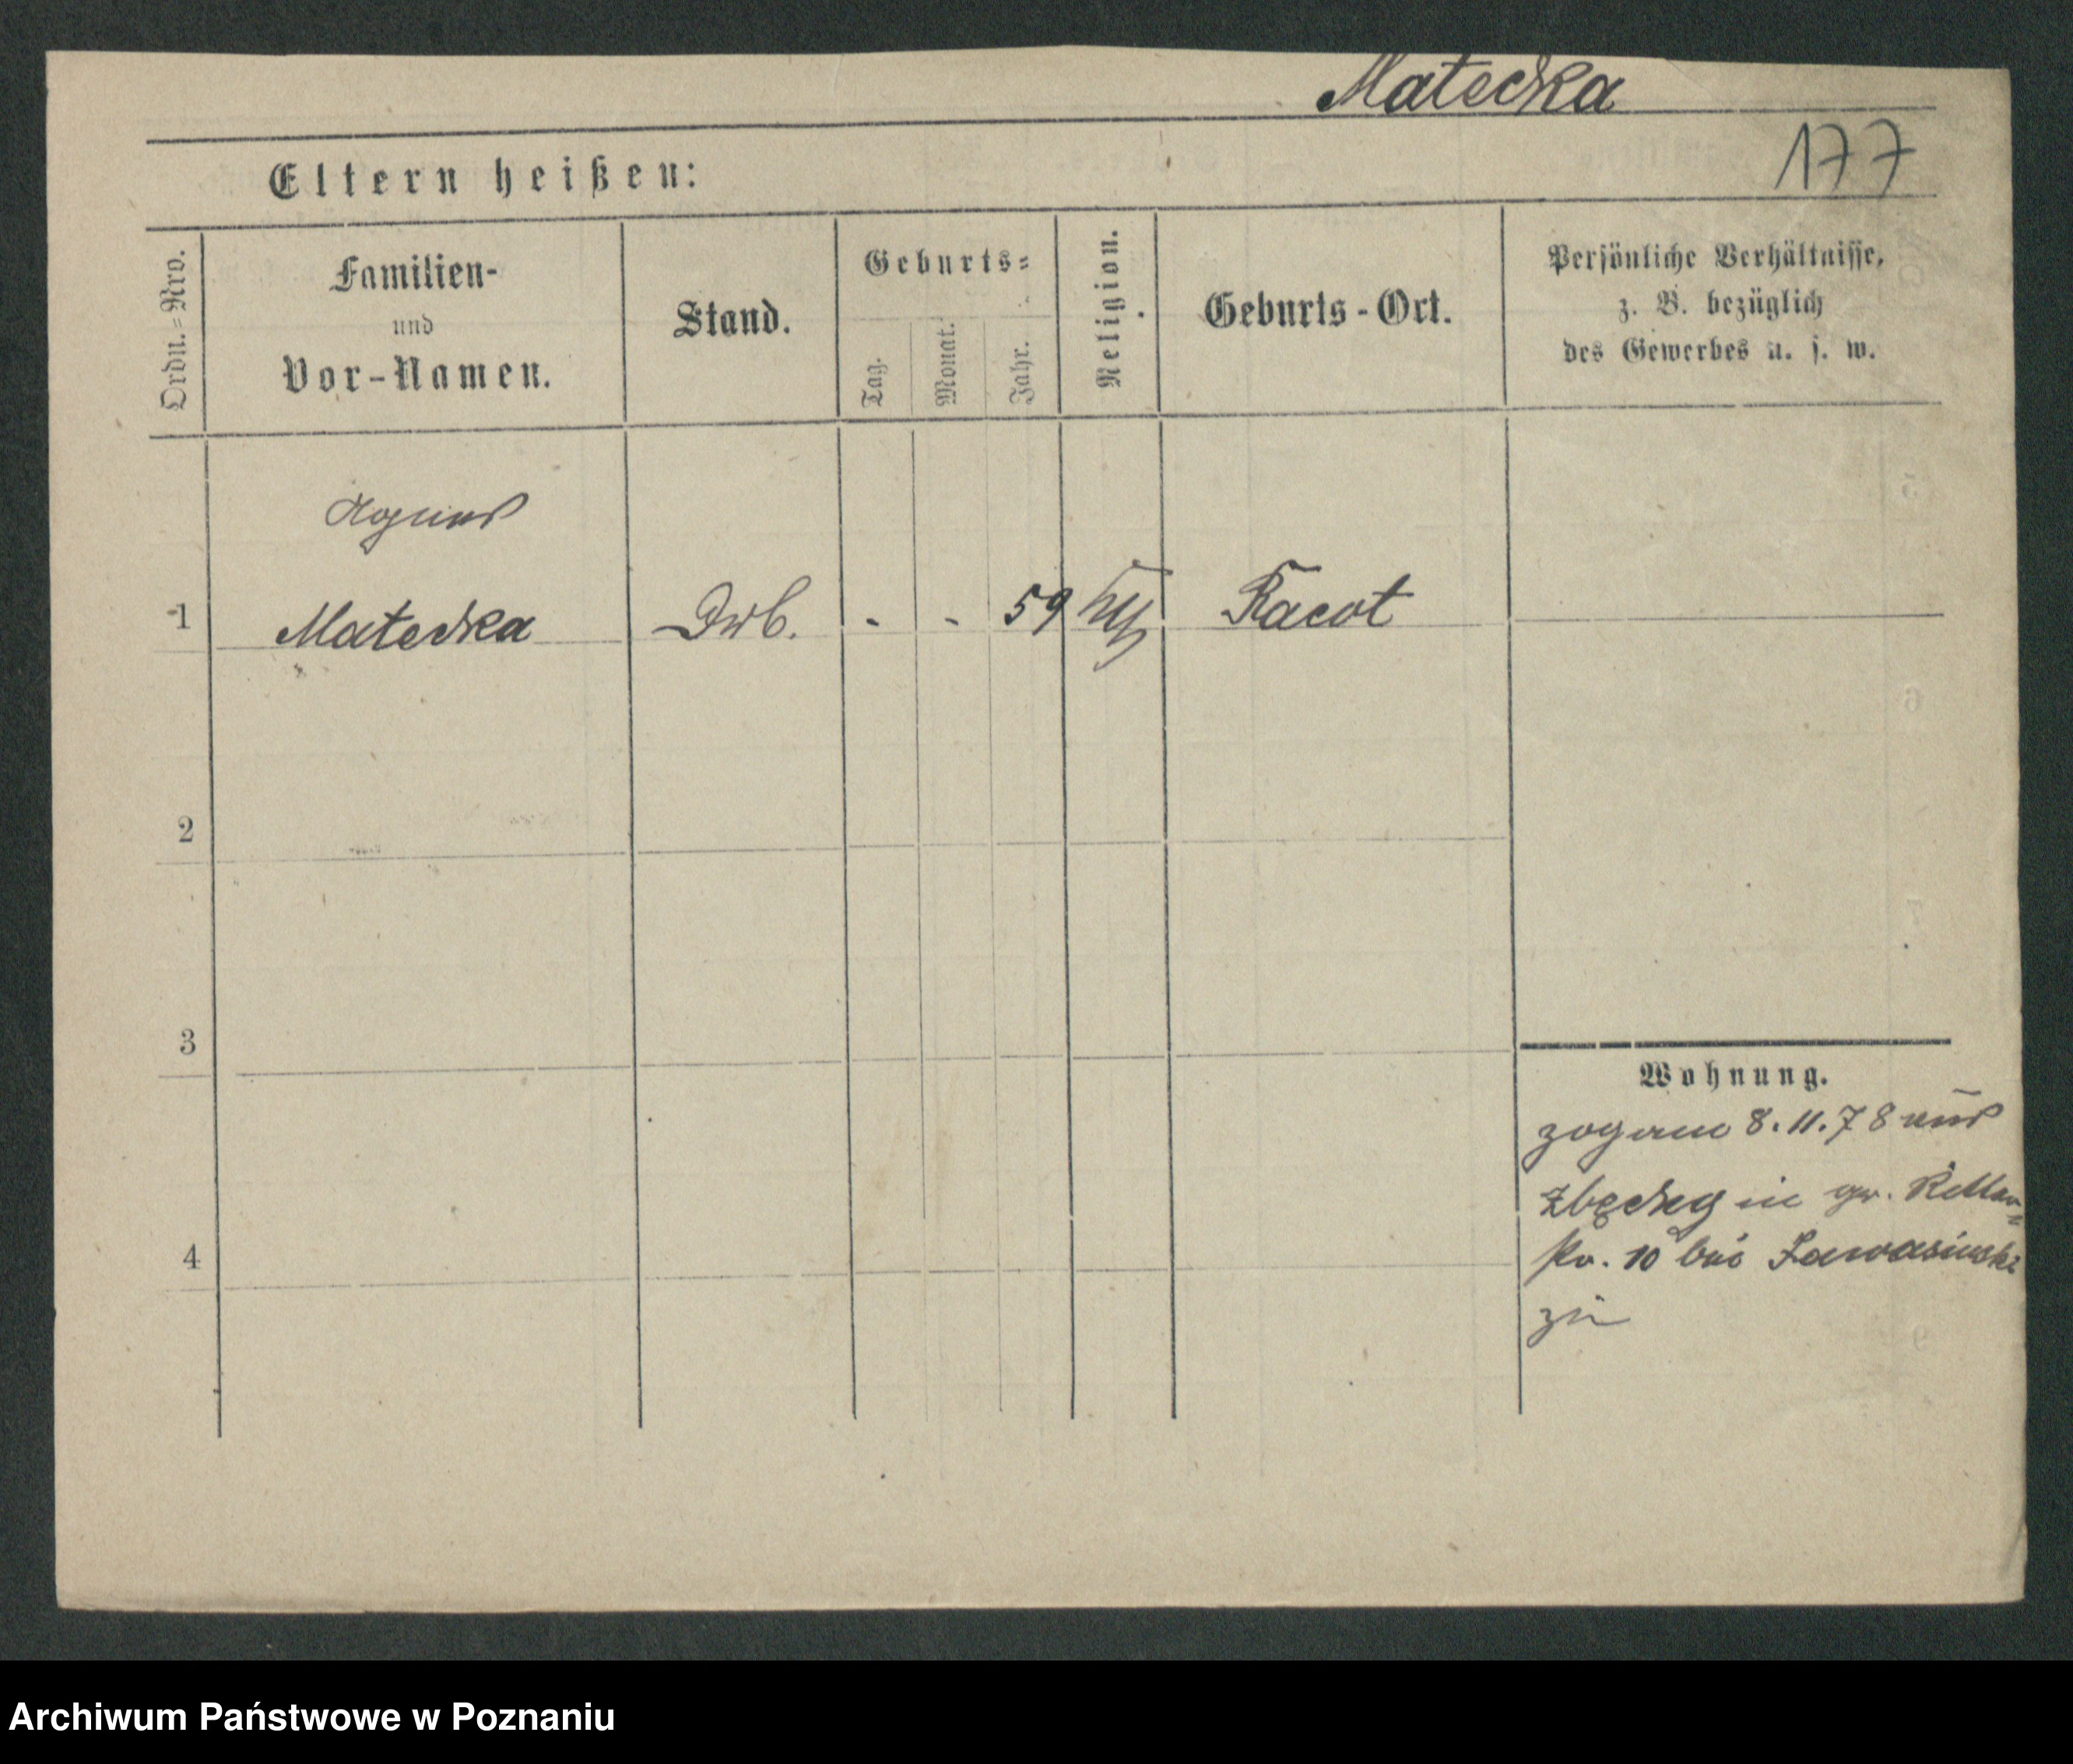 Matecka
177
Eltern heißen:
Ordn.=Nro.
Familien-
und
Vor-Namen.
Stand.
Geburts=
Tag.
Monat.
Jahr.
Religion.
Geburts-Ort.
Persönliche Verhältnisse,
z. B. bezüglich
des Gewerbes u. s. w.
Agnes
1 Matecka - - 59 Racot
2
3
4
Wohnung.
zog am 8.11.78 aus
in gr. Ritter=
10 bei
zu
Archiwum Państwowe w Poznaniu